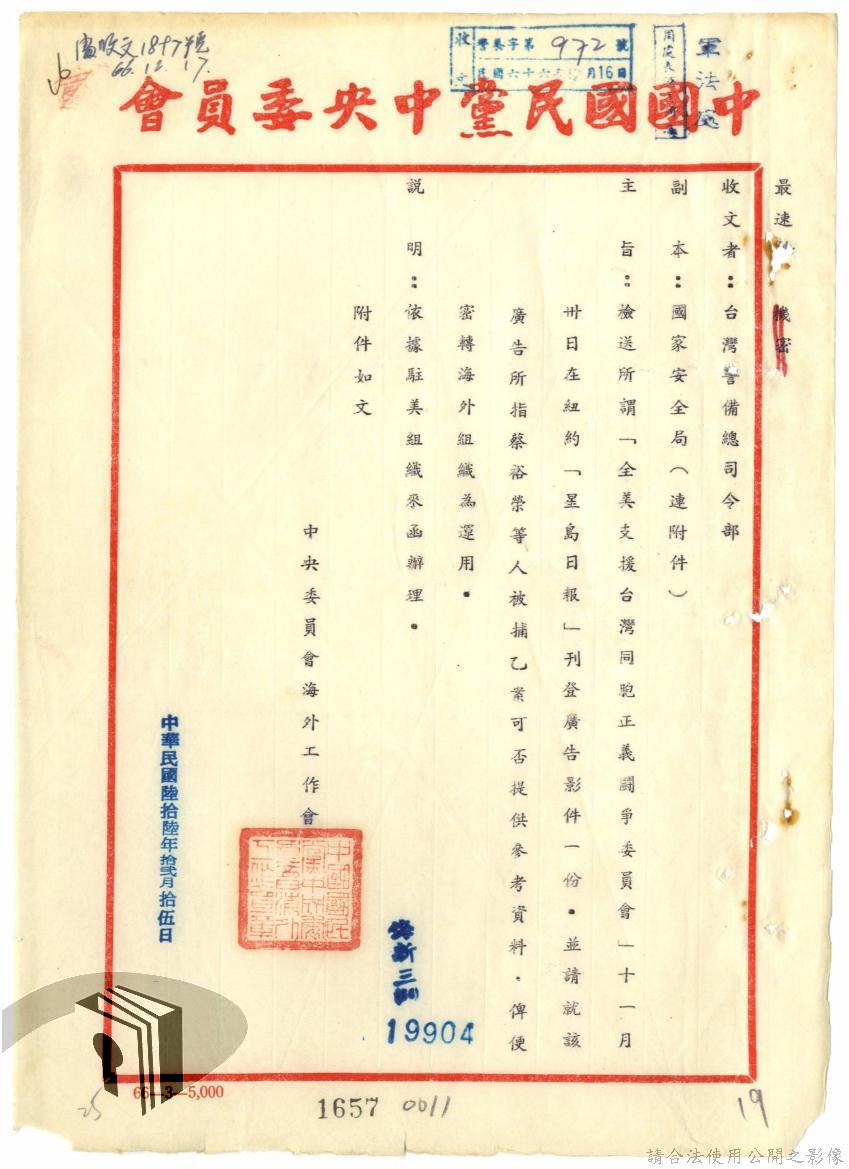 中國國民黨中央委員會
收文
警秦字第972號
民國六十六年12月16日
軍法處
66.12.17.
最速件
機密
收文者：台灣警備總司令部
副本：國家安全局（連附件）
主旨：檢送所謂「全美支援台灣同胞正義鬪爭委員會」十一月
卅日在紐約「星島日報」刊登廣告影件一份。並請就該
廣告所指蔡裕榮等人被捕乙案可否提供參考資料，俾便
密轉海外組織為運用。
説明：依據駐美組織來函辦理。
附件如文
中央委員會海外工作會
中華民國陸拾陸年拾弍月拾伍日
海新三
19904
66—3—5,000
1657
0011
25
19
請合法使用公開之影像